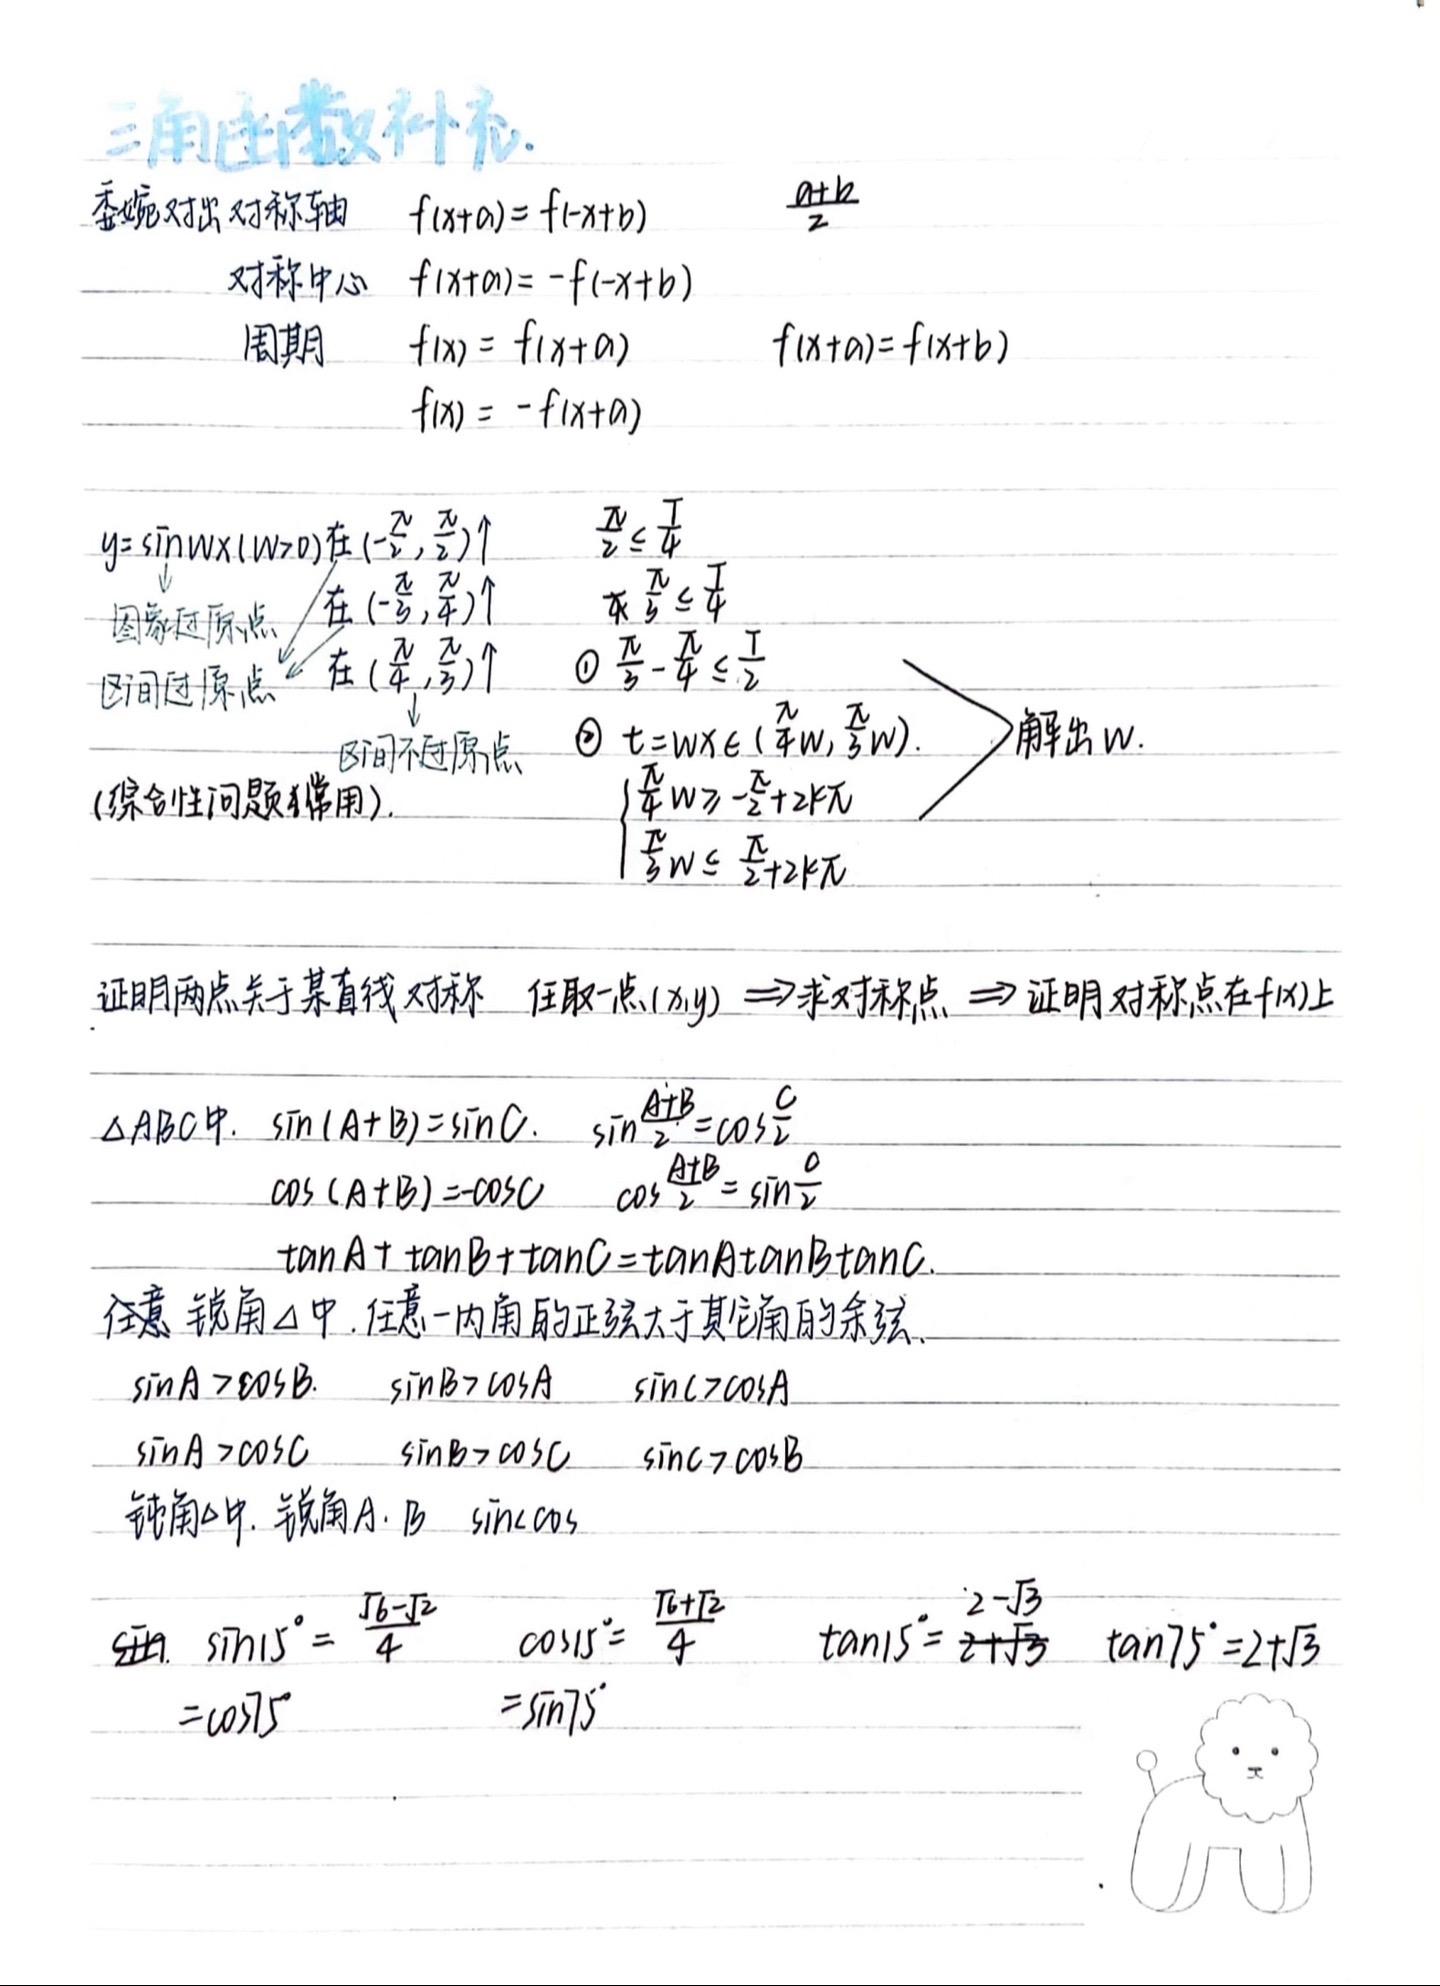 三角函数补充.
委婉对出对称轴 f(x+a)=f(-x+b) (a+b)/2
对称中心 f(x+a)=-f(-x+b)
周期 f(x)=f(x+a) f(x+a)=f(x+b)
f(x)=-f(x+a)
y=sinwx(w>0)在(-π/2,π/2)↑ π/2≤T/4
在(-π/3,π/4)↑ π/3≤T/4
图象过原点
在(π/4,π/3)↑ ①π/3-π/4≤T/2
区间过原点
②t=wx∈(π/4w,π/3w). 解出w.
区间不过原点
(综合性问题常用). π/4w≥-π/2+2kπ
π/3w≤π/2+2kπ
证明两点关于某直线对称 任取一点(x,y)⇒求对称点⇒证明对称点在f(x)上
△ABC中. sin(A+B)=sinC. sin(A+B)/2=cosC/2
cos(A+B)=-cosC cos(A+B)/2=sinC/2
tanA+tanB+tanC=tanAtanBtanC.
任意锐角△中.任意一内角的正弦大于其它角的余弦.
sinA>cosB. sinB>cosA sinC>cosA
sinA>cosC sinB>cosC sinC>cosB
钝角△中.锐角A.B sin<cos
sin. sin15°=(√6-√2)/4 cos15°=(√6+√2)/4 tan15°=2-√3 2+√3 tan75°=2+√3
=cos75° =sin75°